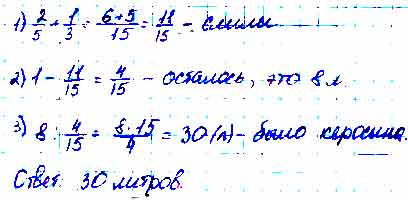 1) 2/5 + 1/3 = (6+5)/15 = 11/15 - слили
2) 1 - 11/15 = 4/15 - осталось, это 8 л.
3) 8 : 4/15 = (8·15)/4 = 30 (л) - было керосина.
Ответ 30 литров.